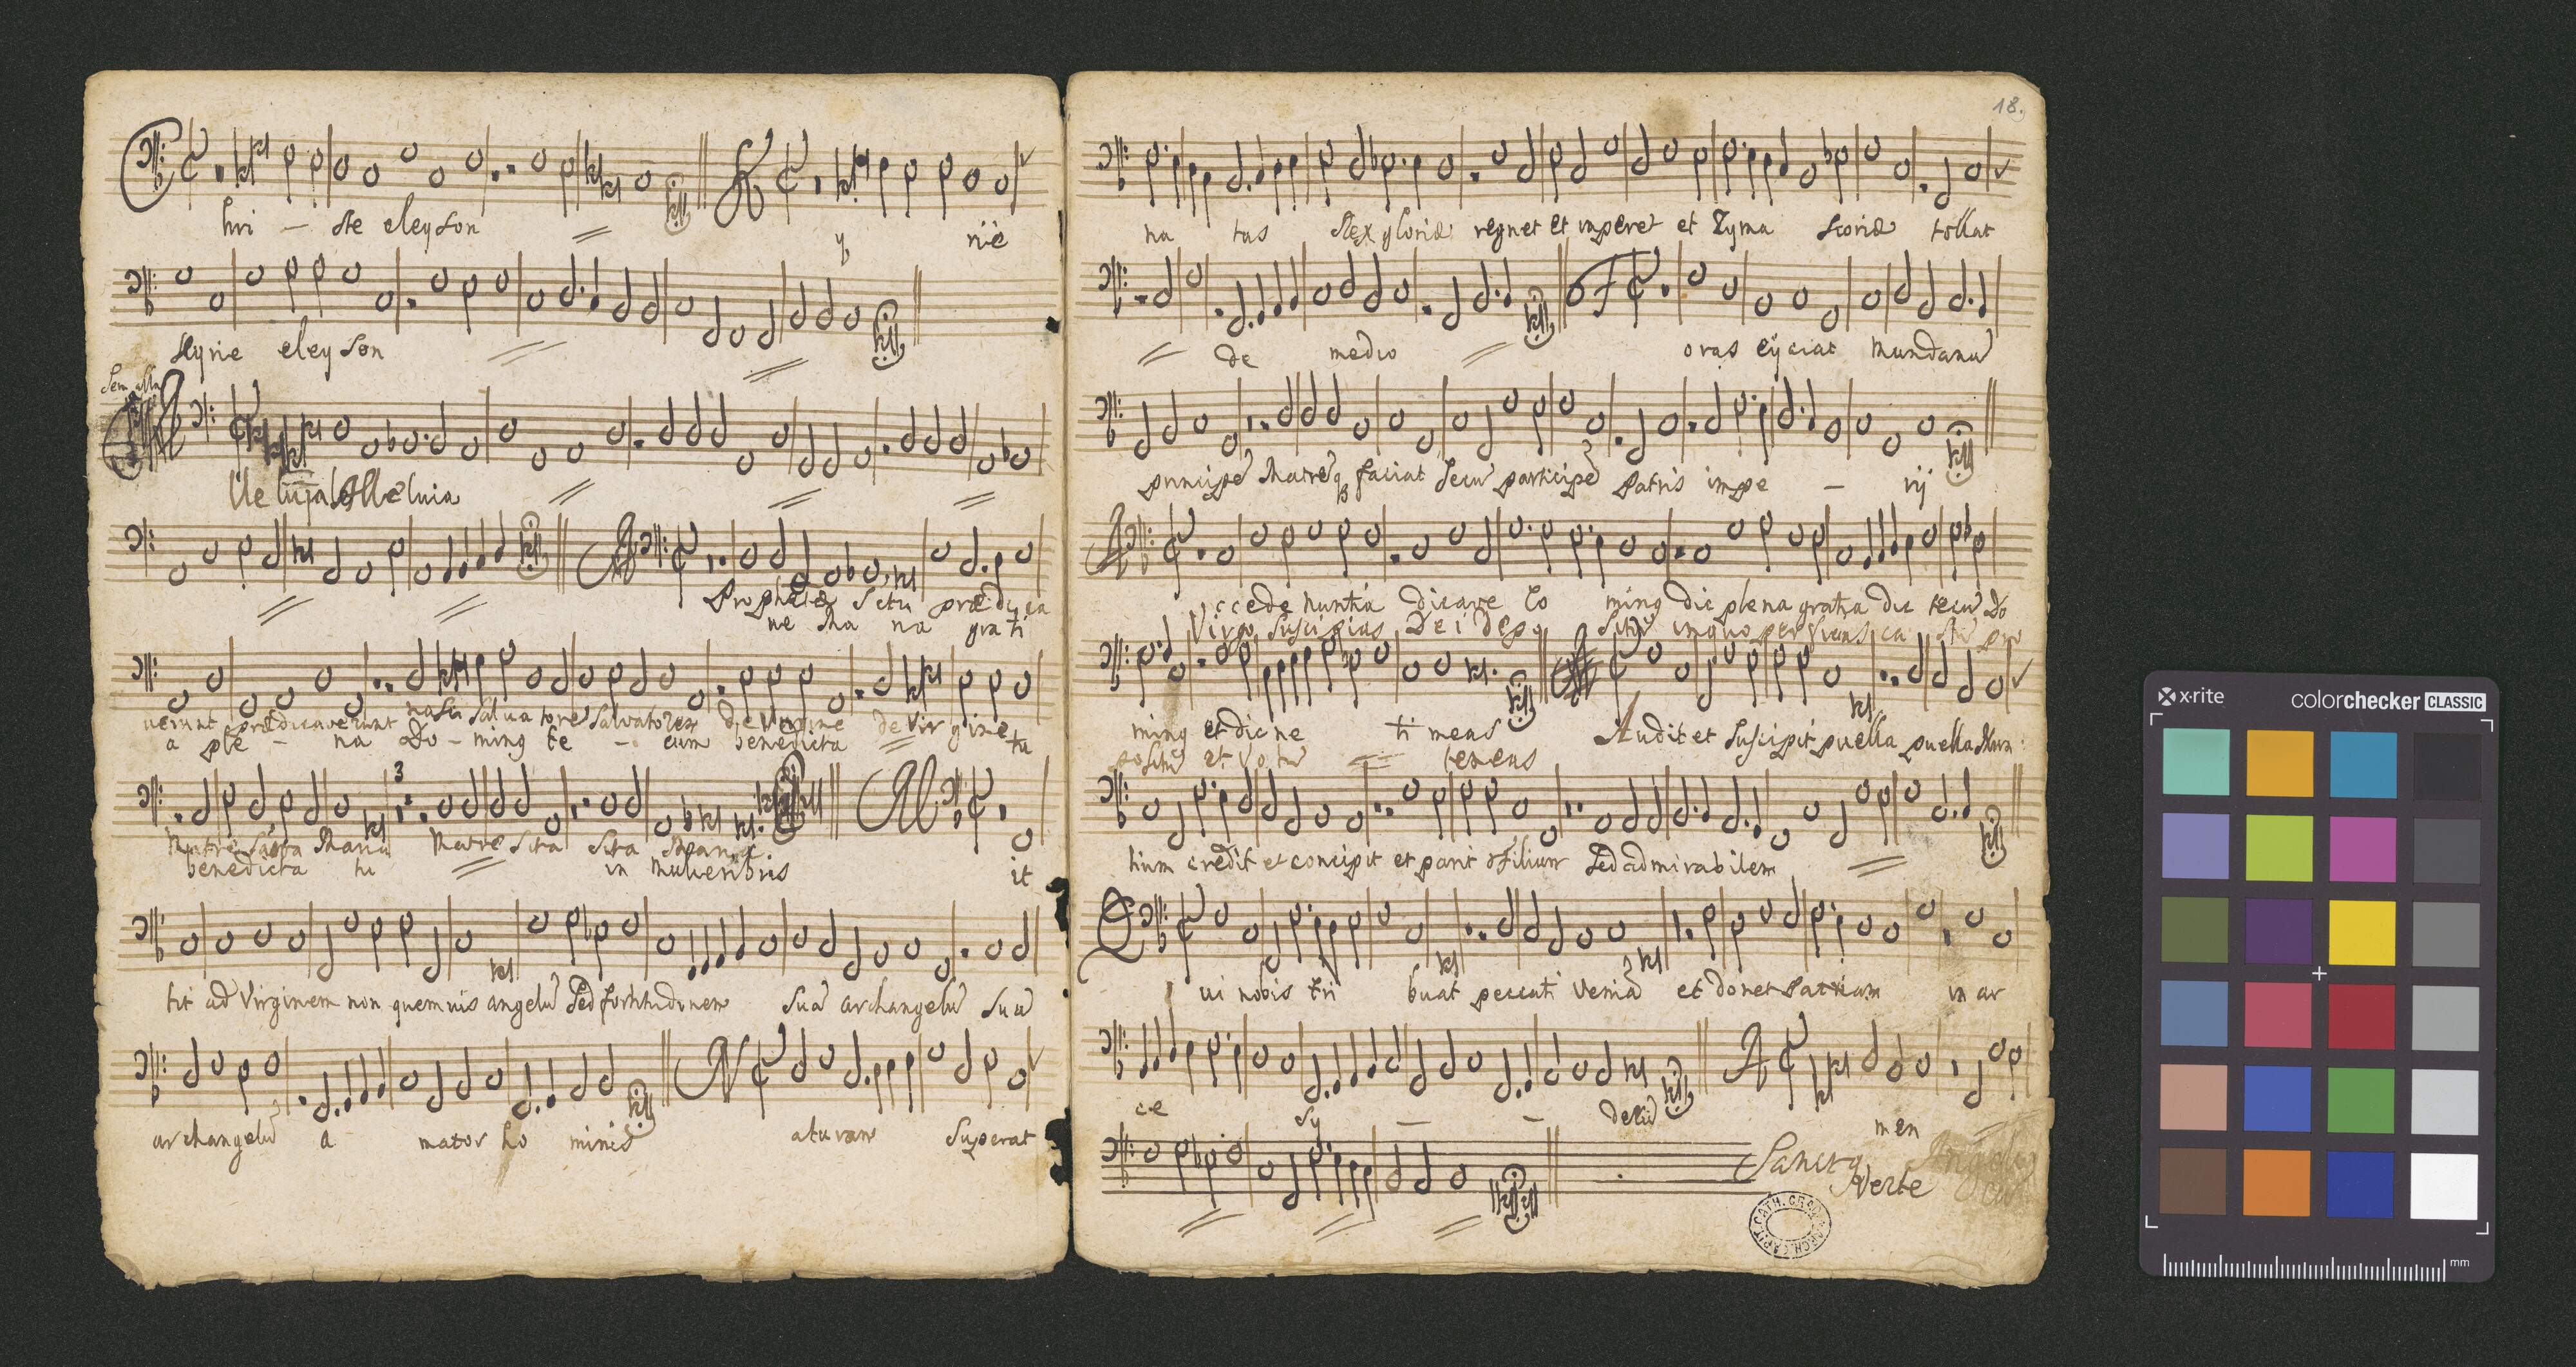 Christe eleyson
Ky rie
Kyrie eleyson
Alleluia Alleluia
Prophetæ Sctu prædica
ne Ma na grati
uerunt prædicaverunt nasci salvatore Salvatorem de Virgine de Virgine
a ple - na Do - minq te - cum benedicta tu
Matre Sancta Maria Matre Scta Scta Maria
benedicta tu in mulieribris it
tit ad Virginem non quemuis angelu Sed fortitudinem Sua archangelu Sua
archangelu a mator ho minis Naturam Superat
18.
na tus Rex gloriæ regnet et imperet et Zyma Scoriæ tollat
de medio Foras eyciat Mundanu
principe Matreq faciat Secu participe Patris impe - rij
Accede nuntia dic ave co minq dic plena gratia dic tecu Do
Virgo Suscipias Dei depo Situ in quo perficias ca Stu pro
minq et dic ne ti meas Audit et Suscipit puella puella Nun
positu et Votu teneas
tium credit et concipit et parit Filium Sed admirabilem
Qui nobis tri buat peccati Venia et donet Patriam in ar
ce Sy - - deru A men
Sancta Angely
Verte
CATH. CRAC. ARCH. CAPIT.
x-rite colorchecker CLASSIC
mm